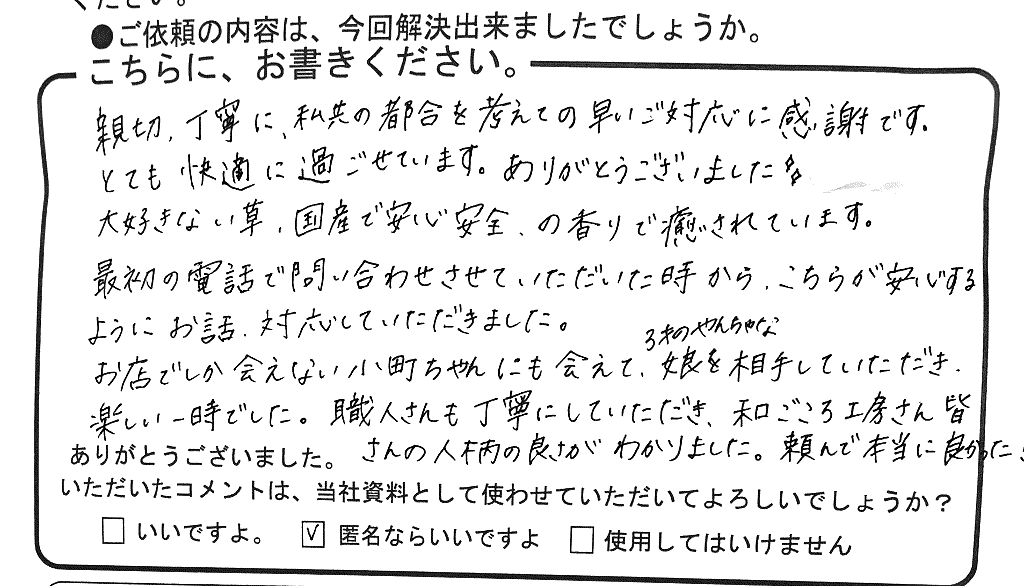 ください。
●ご依頼の内容は、今回解決出来ましたでしょうか。
こちらに、お書きください。
親切、丁寧に、私共の都合を考えての早いご対応に感謝です。
とても快適に過ごせています。ありがとうございました
大好きない草、国産で安心安全、の香りで癒されています。
最初の電話で問い合わせさせていただいた時から、こちらが安心する
ようにお話、対応していただきました。
3才のやんちゃな
お店でしか会えない小町ちゃんにも会えて、娘を相手していただき、
楽しい一時でした。職人さんも丁寧にしていただき、和ごころ工房さん皆
さんの人柄の良さがわかりました。頼んで本当に良かった
ありがとうございました。
いただいたコメントは、当社資料として使わせていただいてよろしいでしょうか?
いいですよ。 ☑ 匿名ならいいですよ □ 使用してはいけません